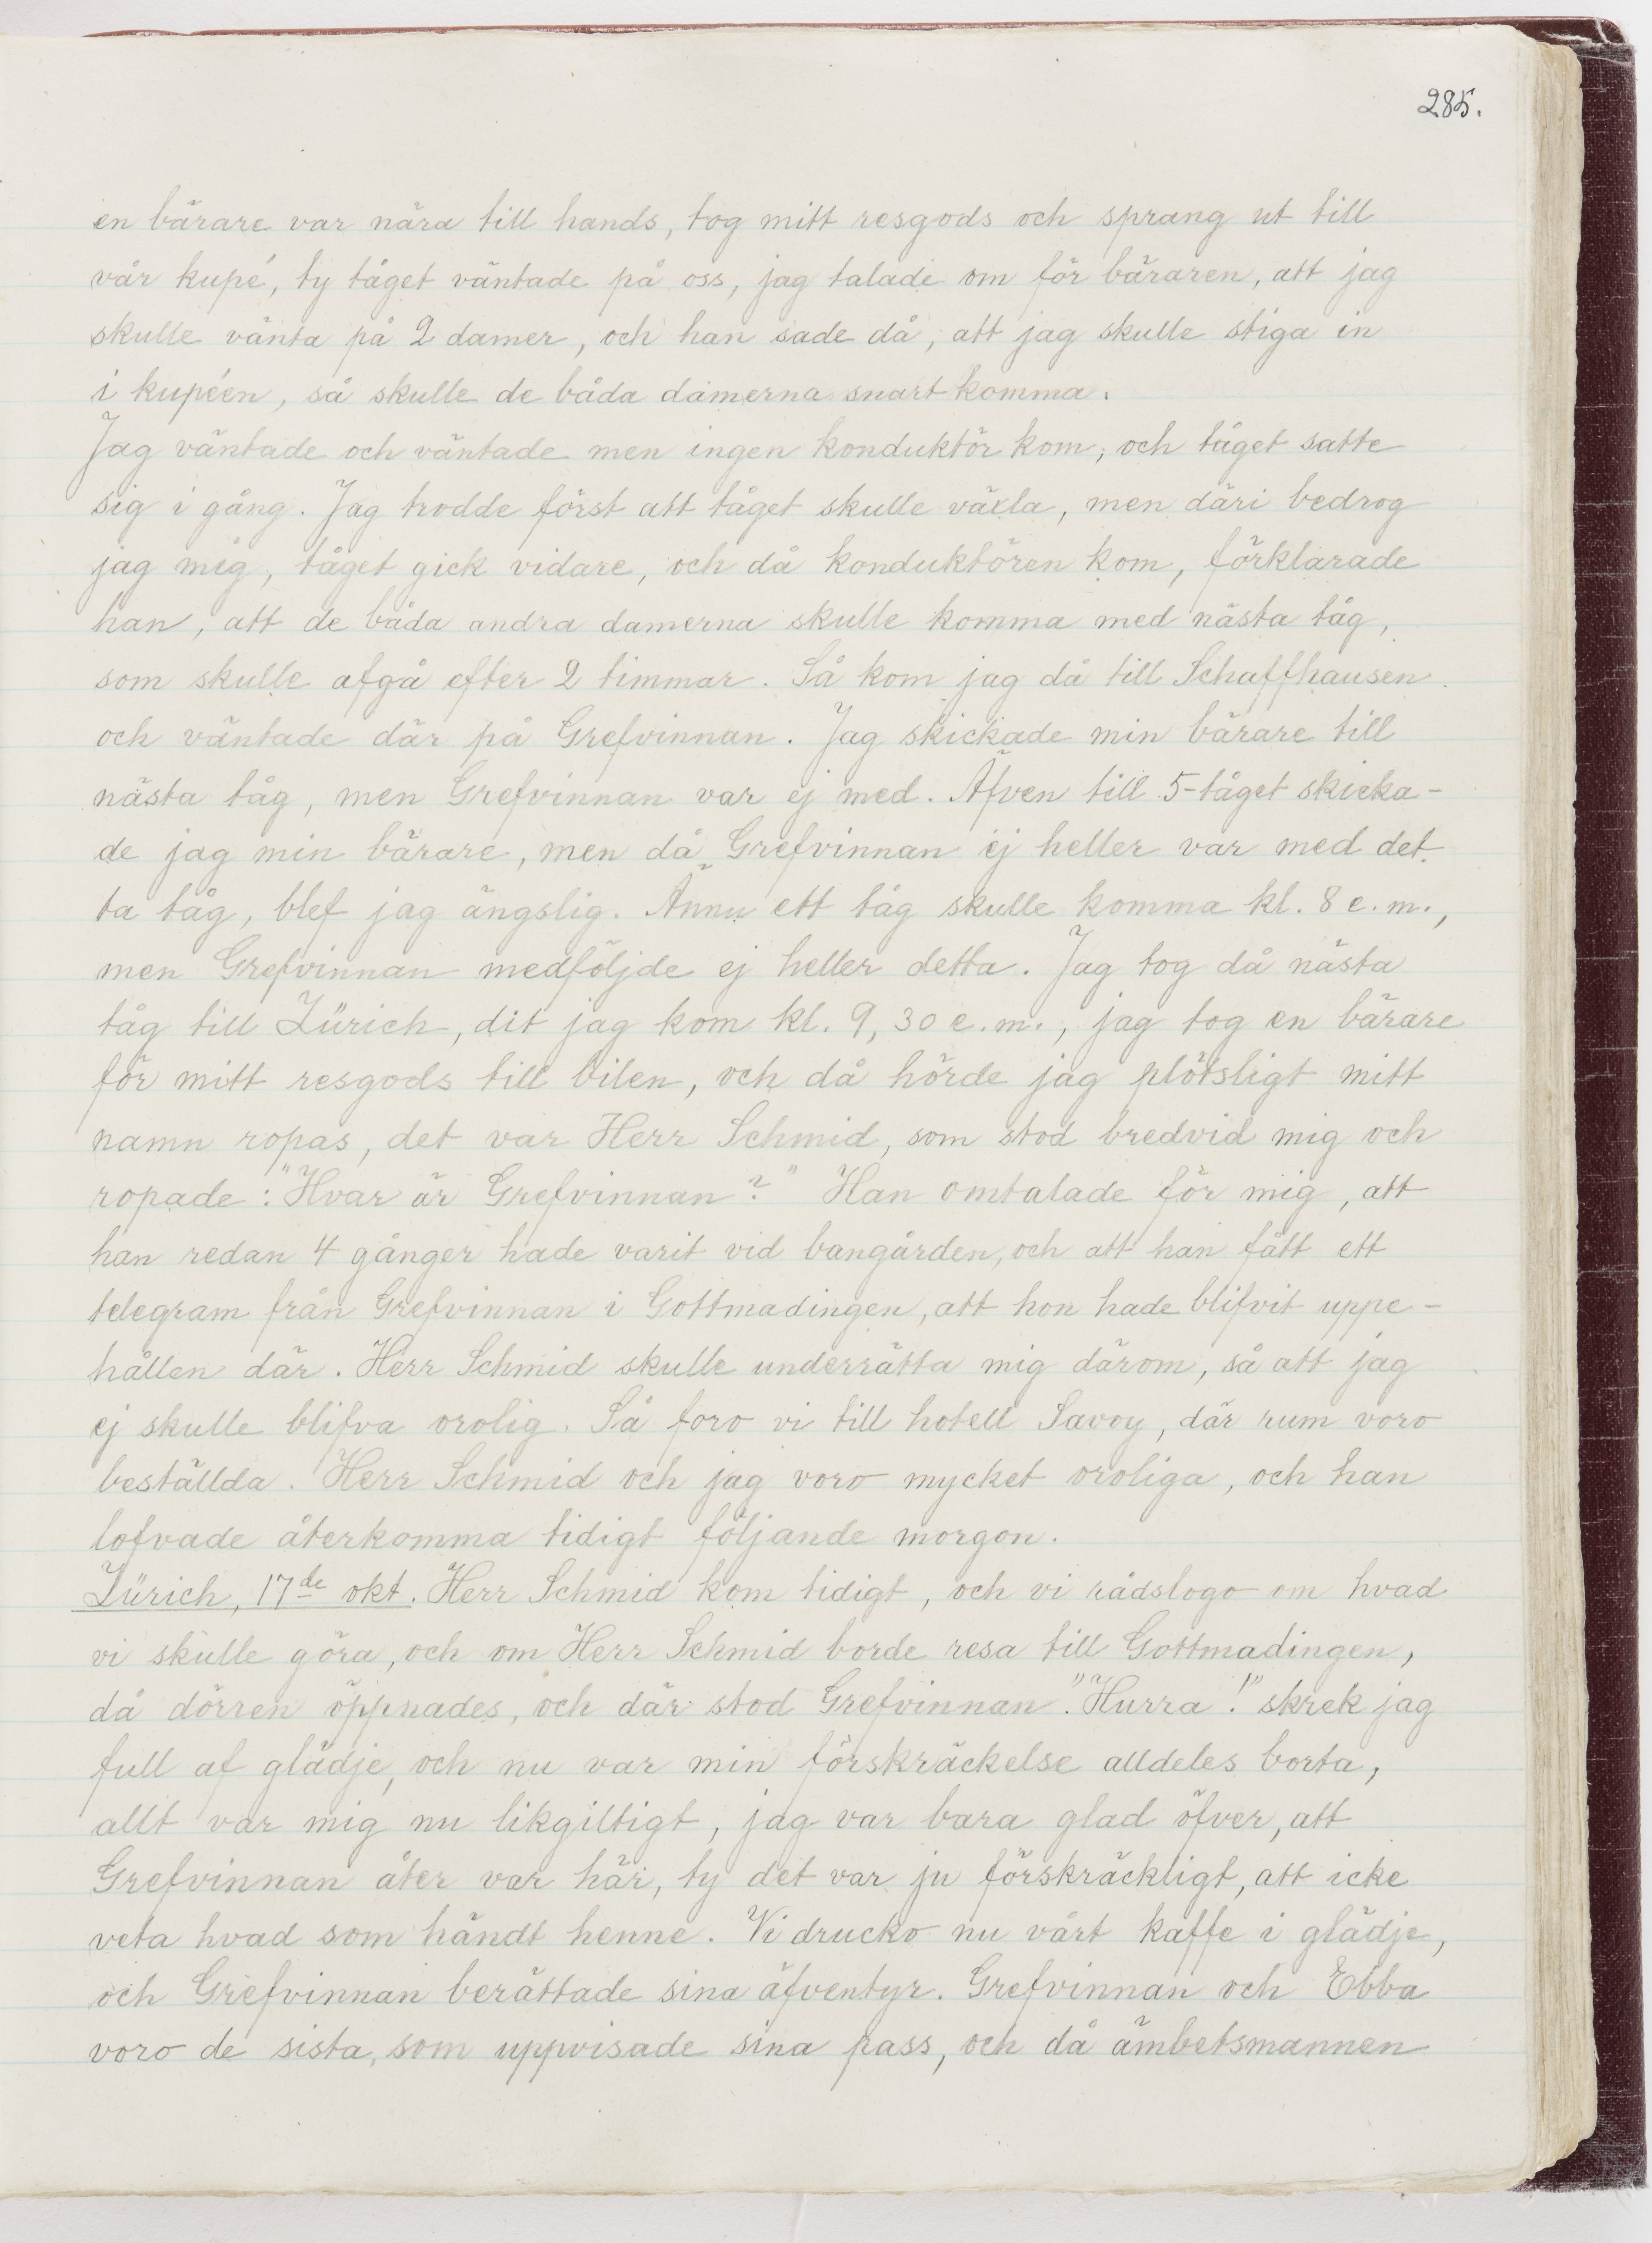 285.
en bärare var nära till hands, tog mitt resgods och sprang ut till
vår kupé, ty tåget väntade på oss, jag talade om för bäraren, att jag
skulle vänta på 2 damer, och han sade då, att jag skulle stiga in
i kupéen, så skulle de båda damerna snart komma.
Jag väntade och väntade men ingen konduktör kom, och tåget satte
sig i gång. Jag trodde först att tåget skulle växla, men däri bedrog
jag mig, tåget gick vidare, och då konduktören kom, förklarade
han, att de båda andra damerna skulle komma med nästa tåg,
som skulle afgå efter 2 timmar. Så kom jag då till Schaffhausen
och väntade där på Grefvinnan. Jag skickade min bärare till
nästa tåg, men Grefvinnan var ej med. Äfven till 5-tåget skicka-
de jag min bärare, men då Grefvinnan ej heller var med det-
ta tåg, blef jag ängslig. Ännu ett tåg skulle komma kl. 8 e.m.,
men Grefvinnan medföljde ej heller detta. Jag tog då nästa
tåg till Zürich, dit jag kom kl. 9,30 e.m., jag tog en bärare
för mitt resgods till bilen, och då hörde jag plötsligt mitt
namn ropas, det var Herr Schmid, som stod bredvid mig och
ropade: "Hvar är Grefvinnan?" Han omtalade för mig, att
han redan 4 gånger hade varit vid bangården, och att han fått ett
telegram från Grefvinnan i Gottmadingen, att hon hade blifvit uppe-
hållen där. Herr Schmid skulle underrätta mig därom, så att jag
ej skulle blifva orolig. Så foro vi till hotell Savoy, där rum voro
beställda. Herr Schmid och jag voro mycket oroliga, och han
lofvade återkomma tidigt följande morgon.
Zürich, 17de okt. Herr Schmid kom tidigt, och vi rådslogo om hvad
vi skulle göra, och om Herr Schmid borde resa till Gottmadingen,
då dörren öppnades, och där stod Grefvinnan. "Hurra!" skrek jag
full af glädje, och nu var min förskräckelse alldeles borta,
allt var mig nu likgiltigt, jag var bara glad öfver, att
Grefvinnan åter var här, ty det var ju förskräckligt, att icke
veta hvad som händt henne. Vi drucko nu vårt kaffe i glädje,
och Grefvinnan berättade sina äfventyr. Grefvinnan och Ebba
voro de sista, som uppvisade sina pass, och då ämbetsmannen